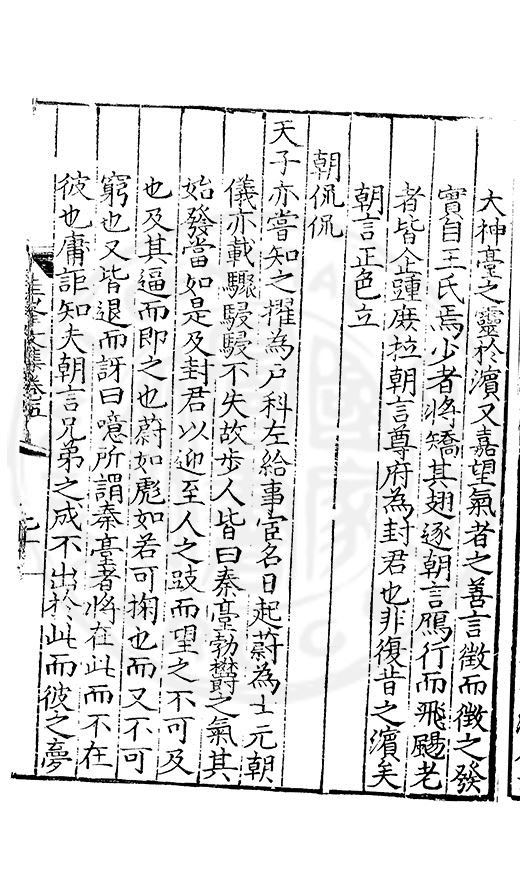 大神臺之靈於濱又嘉望氣者之善言徵而徵之發
實自王氏焉少者將矯其翅逐朝言鴈行而飛颺老
者皆企踵廡拉朝言尊府為封君也非復昔之濱矣
朝言正色立
朝侃侃
天子亦嘗知之擢為戶科左給事宦名日起蔚為士元朝
儀亦載驟駸駸不失故步人皆曰秦臺勃欝之氣其
始發當如是及封君以迎至人之跂而望之不可及
也及其逼而即之也蔚如彪如若可掬也而又不可
窮也又皆退而訝曰噫所謂秦臺者將在此而不在
彼也庸詎知夫朝言兄弟之成不出於此而彼之夢
集卷五